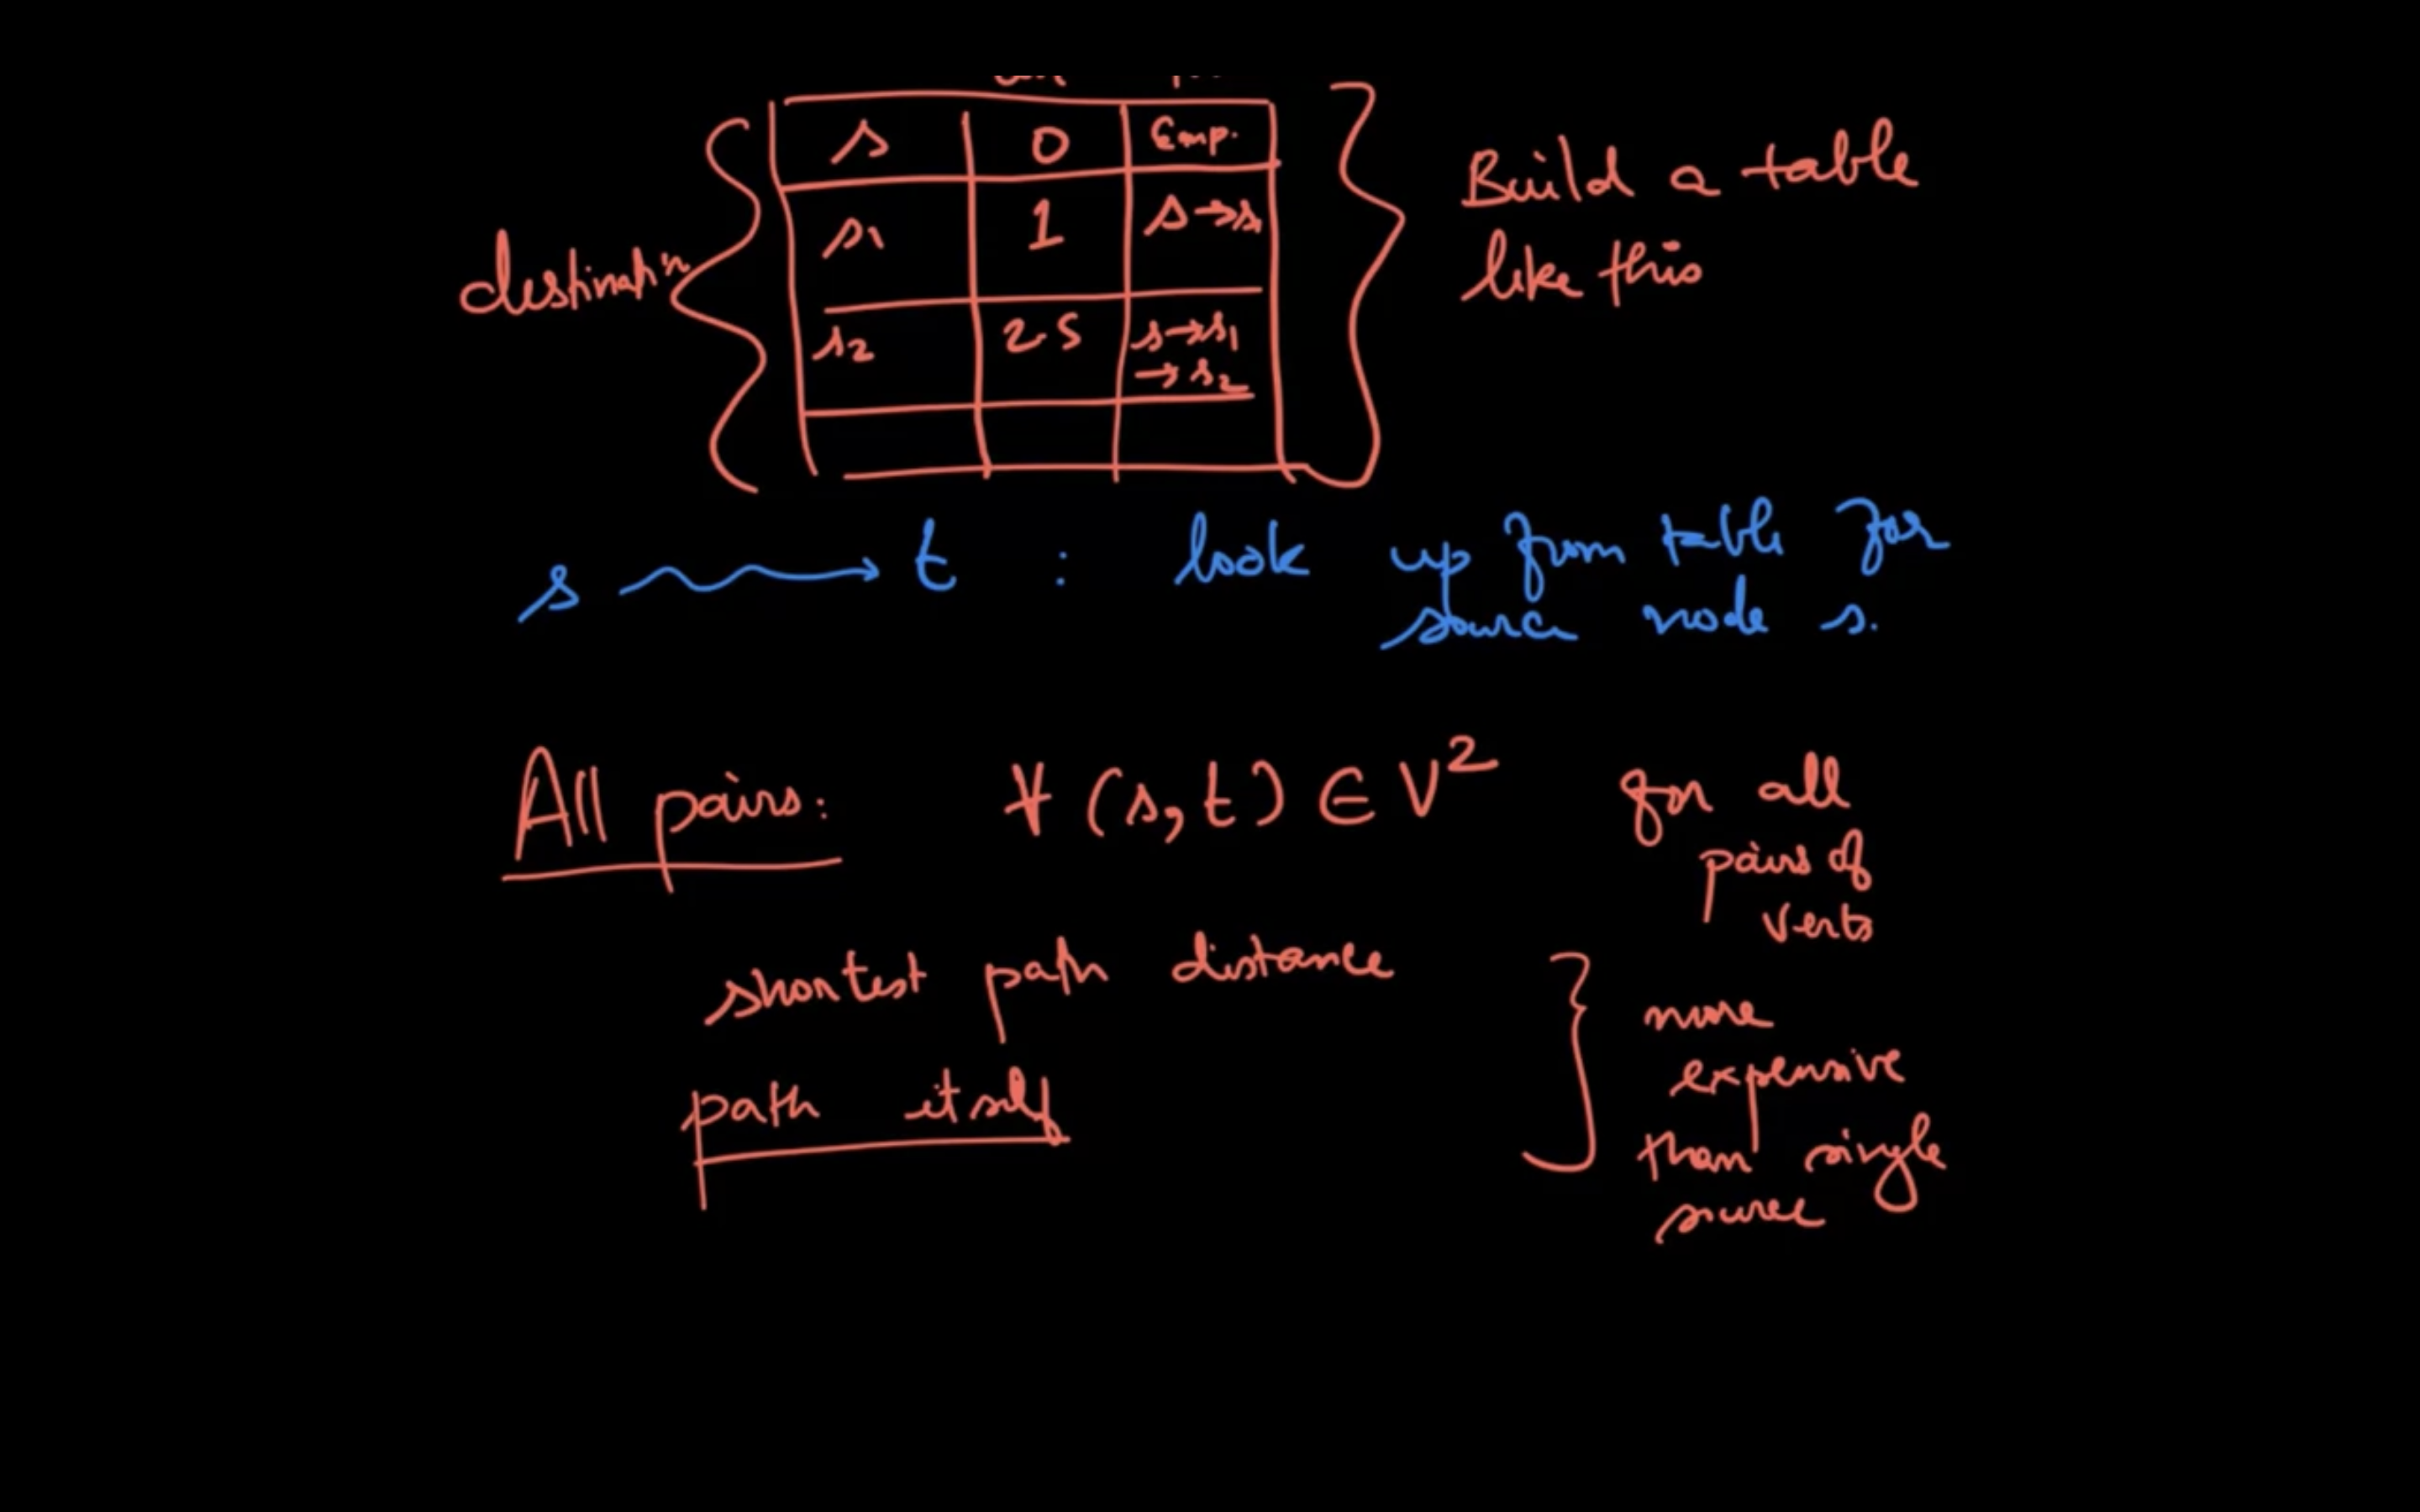 s 0 Emp.
s1 1 s→s1
s2 2.5 s→s1
→ s2
destinat'n
Build a table
like this
s → t : look up from table for
source node s.
All pairs: ∀ (s, t) ∈ V² for all
pairs of
verts
shortest path distance
path itself
more
expensive
than single
source